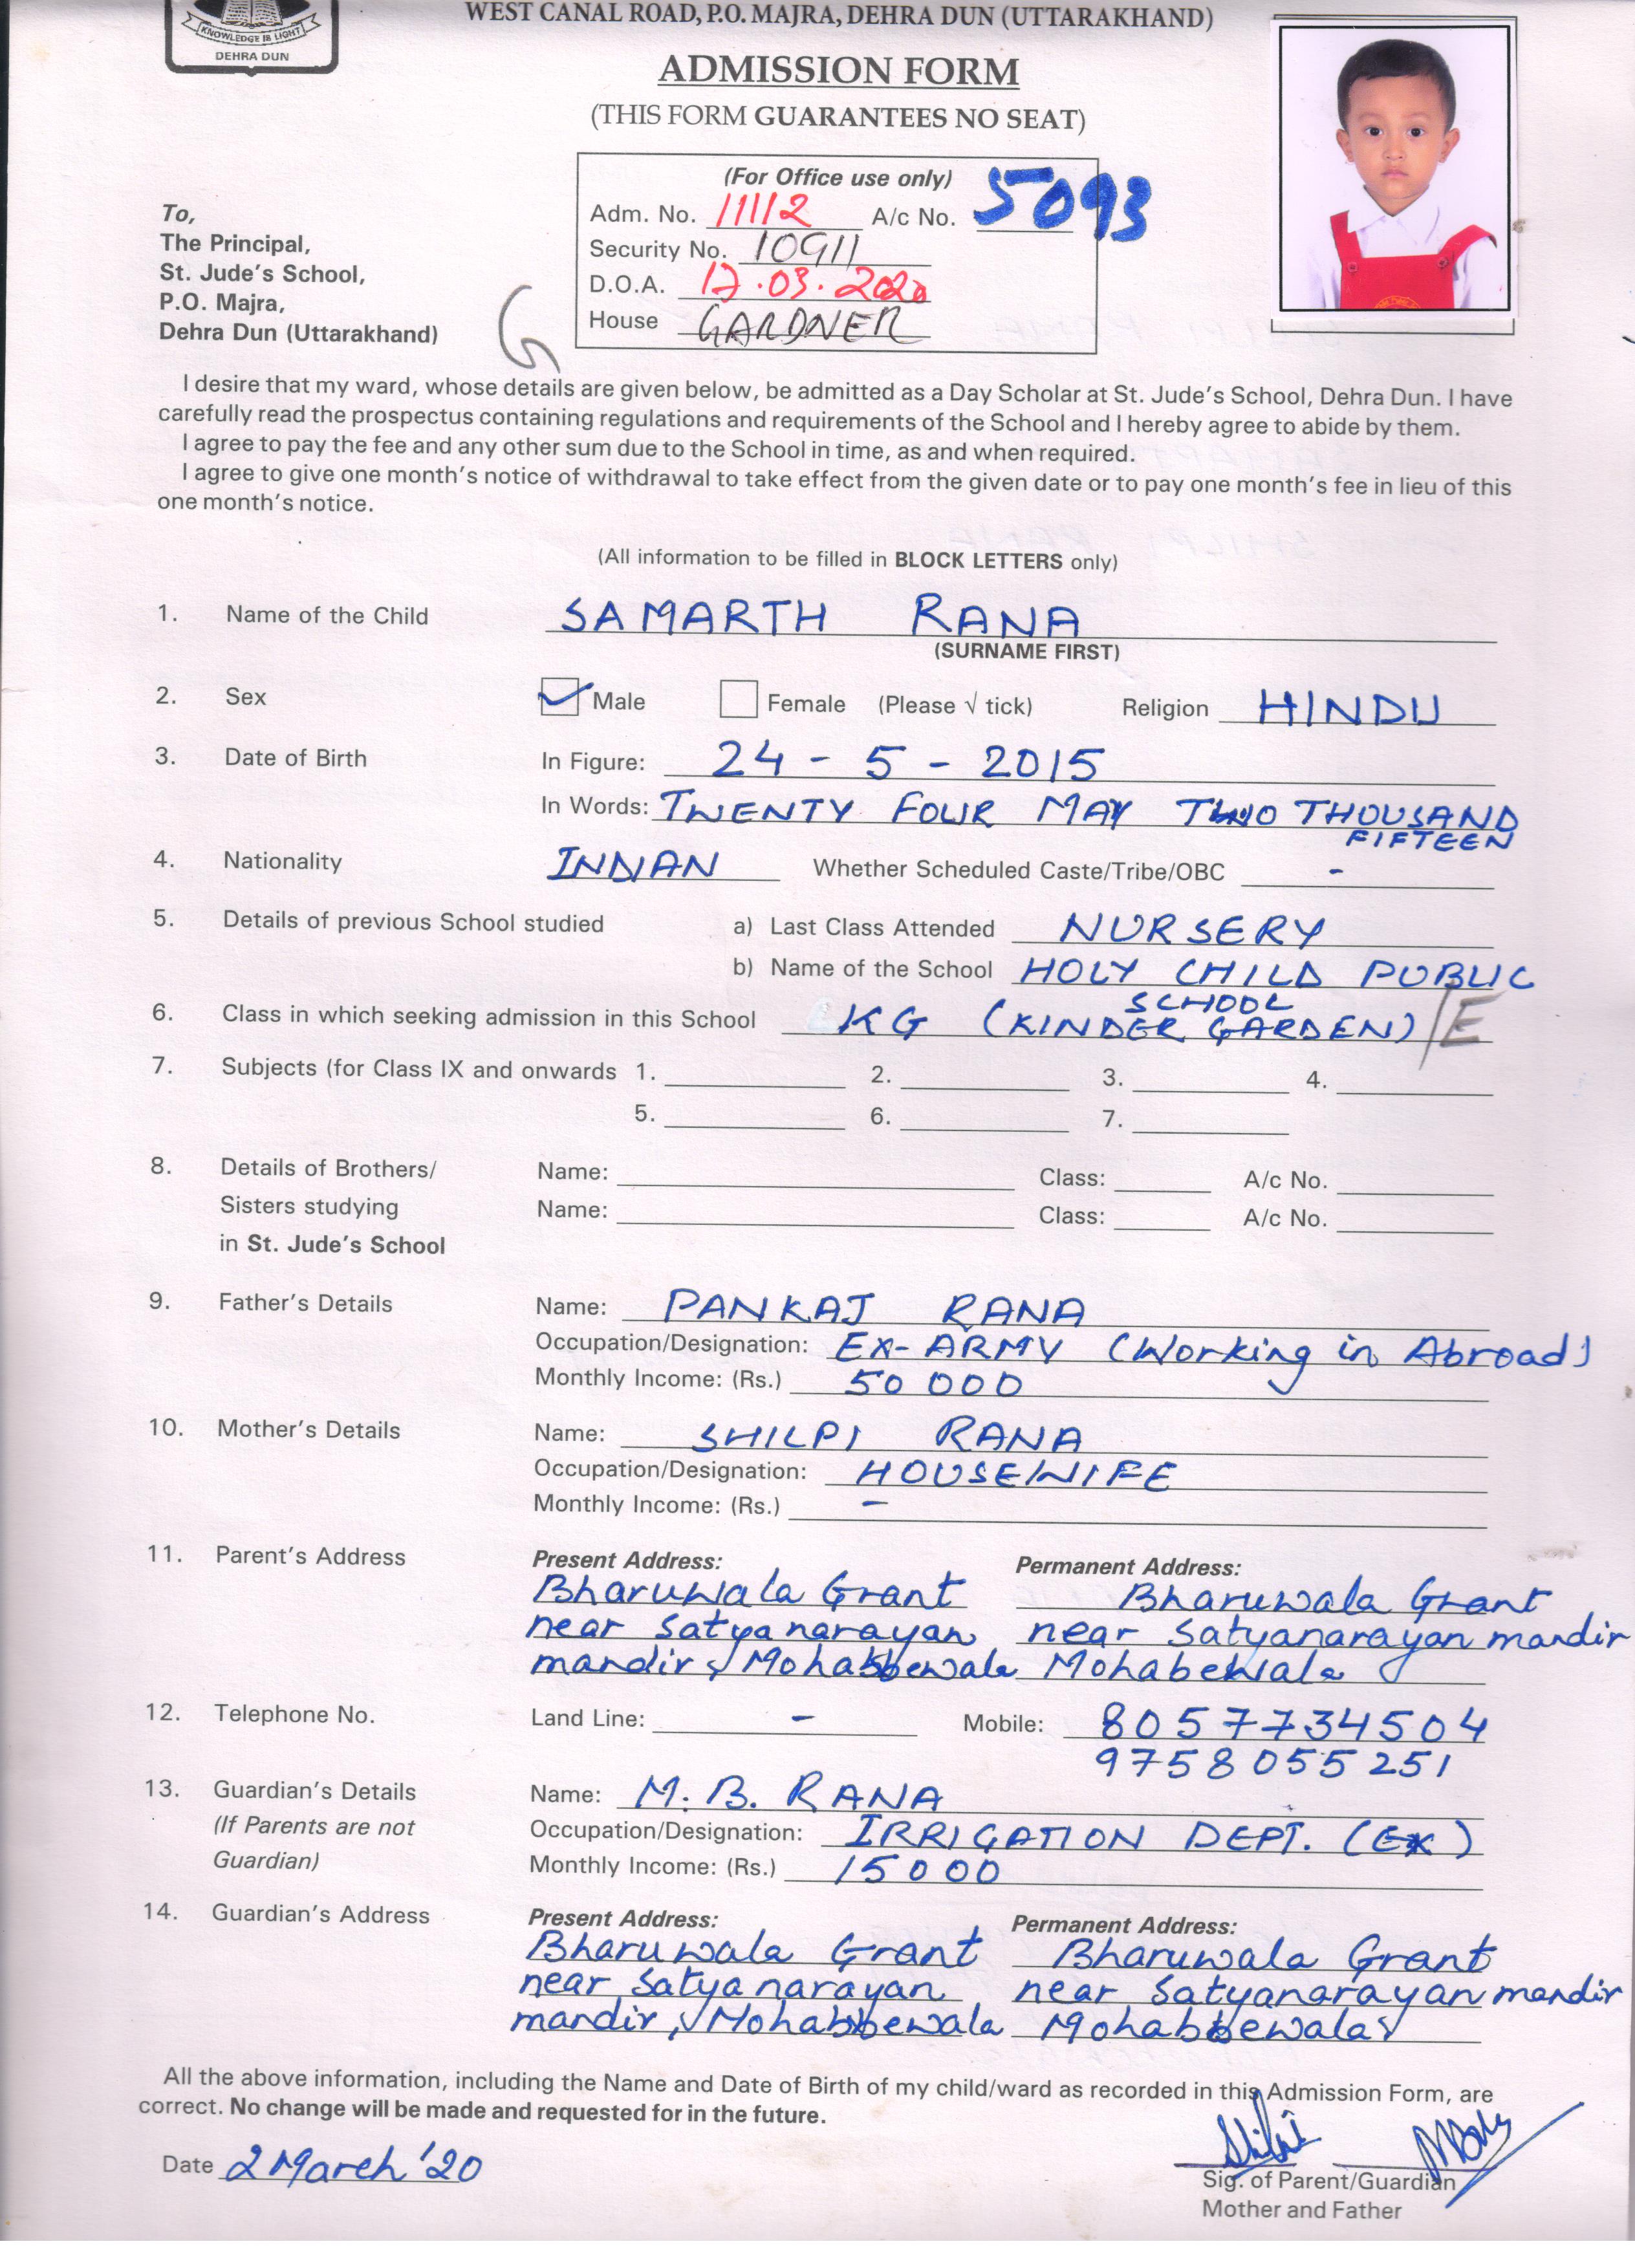 WEST CANAL ROAD, P.O. MAJRA, DEHRA DUN (UTTARAKHAND)
KNOWLEDGE IS LIGHT
DEHRA DUN
ADMISSION FORM
(THIS FORM GUARANTEES NO SEAT)
(For Office use only)
Adm. No. 11112 A/c No. 5093
Security No. 10911
D.O.A. 17.03.2020
House GARDNER
To,
The Principal,
St. Jude's School,
P.O. Majra,
Dehra Dun (Uttarakhand)
I desire that my ward, whose details are given below, be admitted as a Day Scholar at St. Jude's School, Dehra Dun. I have
carefully read the prospectus containing regulations and requirements of the School and I hereby agree to abide by them.
I agree to pay the fee and any other sum due to the School in time, as and when required.
I agree to give one month's notice of withdrawal to take effect from the given date or to pay one month's fee in lieu of this
one month's notice.
(All information to be filled in BLOCK LETTERS only)
1. Name of the Child SAMARTH RANA
(SURNAME FIRST)
2. Sex Male Female (Please √ tick) Religion HINDU
3. Date of Birth In Figure: 24 - 5 - 2015
In Words: TWENTY FOUR MAY TWO THOUSAND
FIFTEEN
4. Nationality INDIAN Whether Scheduled Caste/Tribe/OBC -
5. Details of previous School studied a) Last Class Attended NURSERY
b) Name of the School HOLY CHILD PUBLIC
SCHOOL
6. Class in which seeking admission in this School KG (KINDER GARDEN) /E
7. Subjects (for Class IX and onwards 1. 2. 3. 4.
5. 6. 7.
8. Details of Brothers/ Name: Class: A/c No.
Sisters studying Name: Class: A/c No.
in St. Jude's School
9. Father's Details Name: PANKAJ RANA
Occupation/Designation: EX-ARMY (Working in Abroad)
Monthly Income: (Rs.) 50 000
10. Mother's Details Name: SHILPI RANA
Occupation/Designation: HOUSEWIFE
Monthly Income: (Rs.) -
11. Parent's Address Present Address: Permanent Address:
Bharuwala Grant Bharuwala Grant
near Satyanarayan near Satyanarayan mandir
mandir, Mohabbewala Mohabewala
12. Telephone No. Land Line: - Mobile: 8057734504
9758055251
13. Guardian's Details Name: M.B. RANA
(If Parents are not Occupation/Designation: IRRIGATION DEPT. (EX)
Guardian) Monthly Income: (Rs.) 15000
14. Guardian's Address Present Address: Permanent Address:
Bharuwala Grant Bharuwala Grant
near Satyanarayan near Satyanarayan mandir
mandir, Mohabbewala Mohabbewala
All the above information, including the Name and Date of Birth of my child/ward as recorded in this Admission Form, are
correct. No change will be made and requested for in the future.
Date 2 March '20
Sig. of Parent/Guardian
Mother and Father